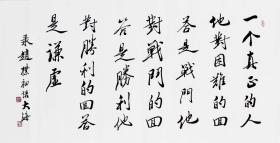 一个真正的人
他對困難的回
答是戰鬥他
對戰鬥的回
答是勝利他
對勝利的回答
是謙虛
录趙樸初語 大海